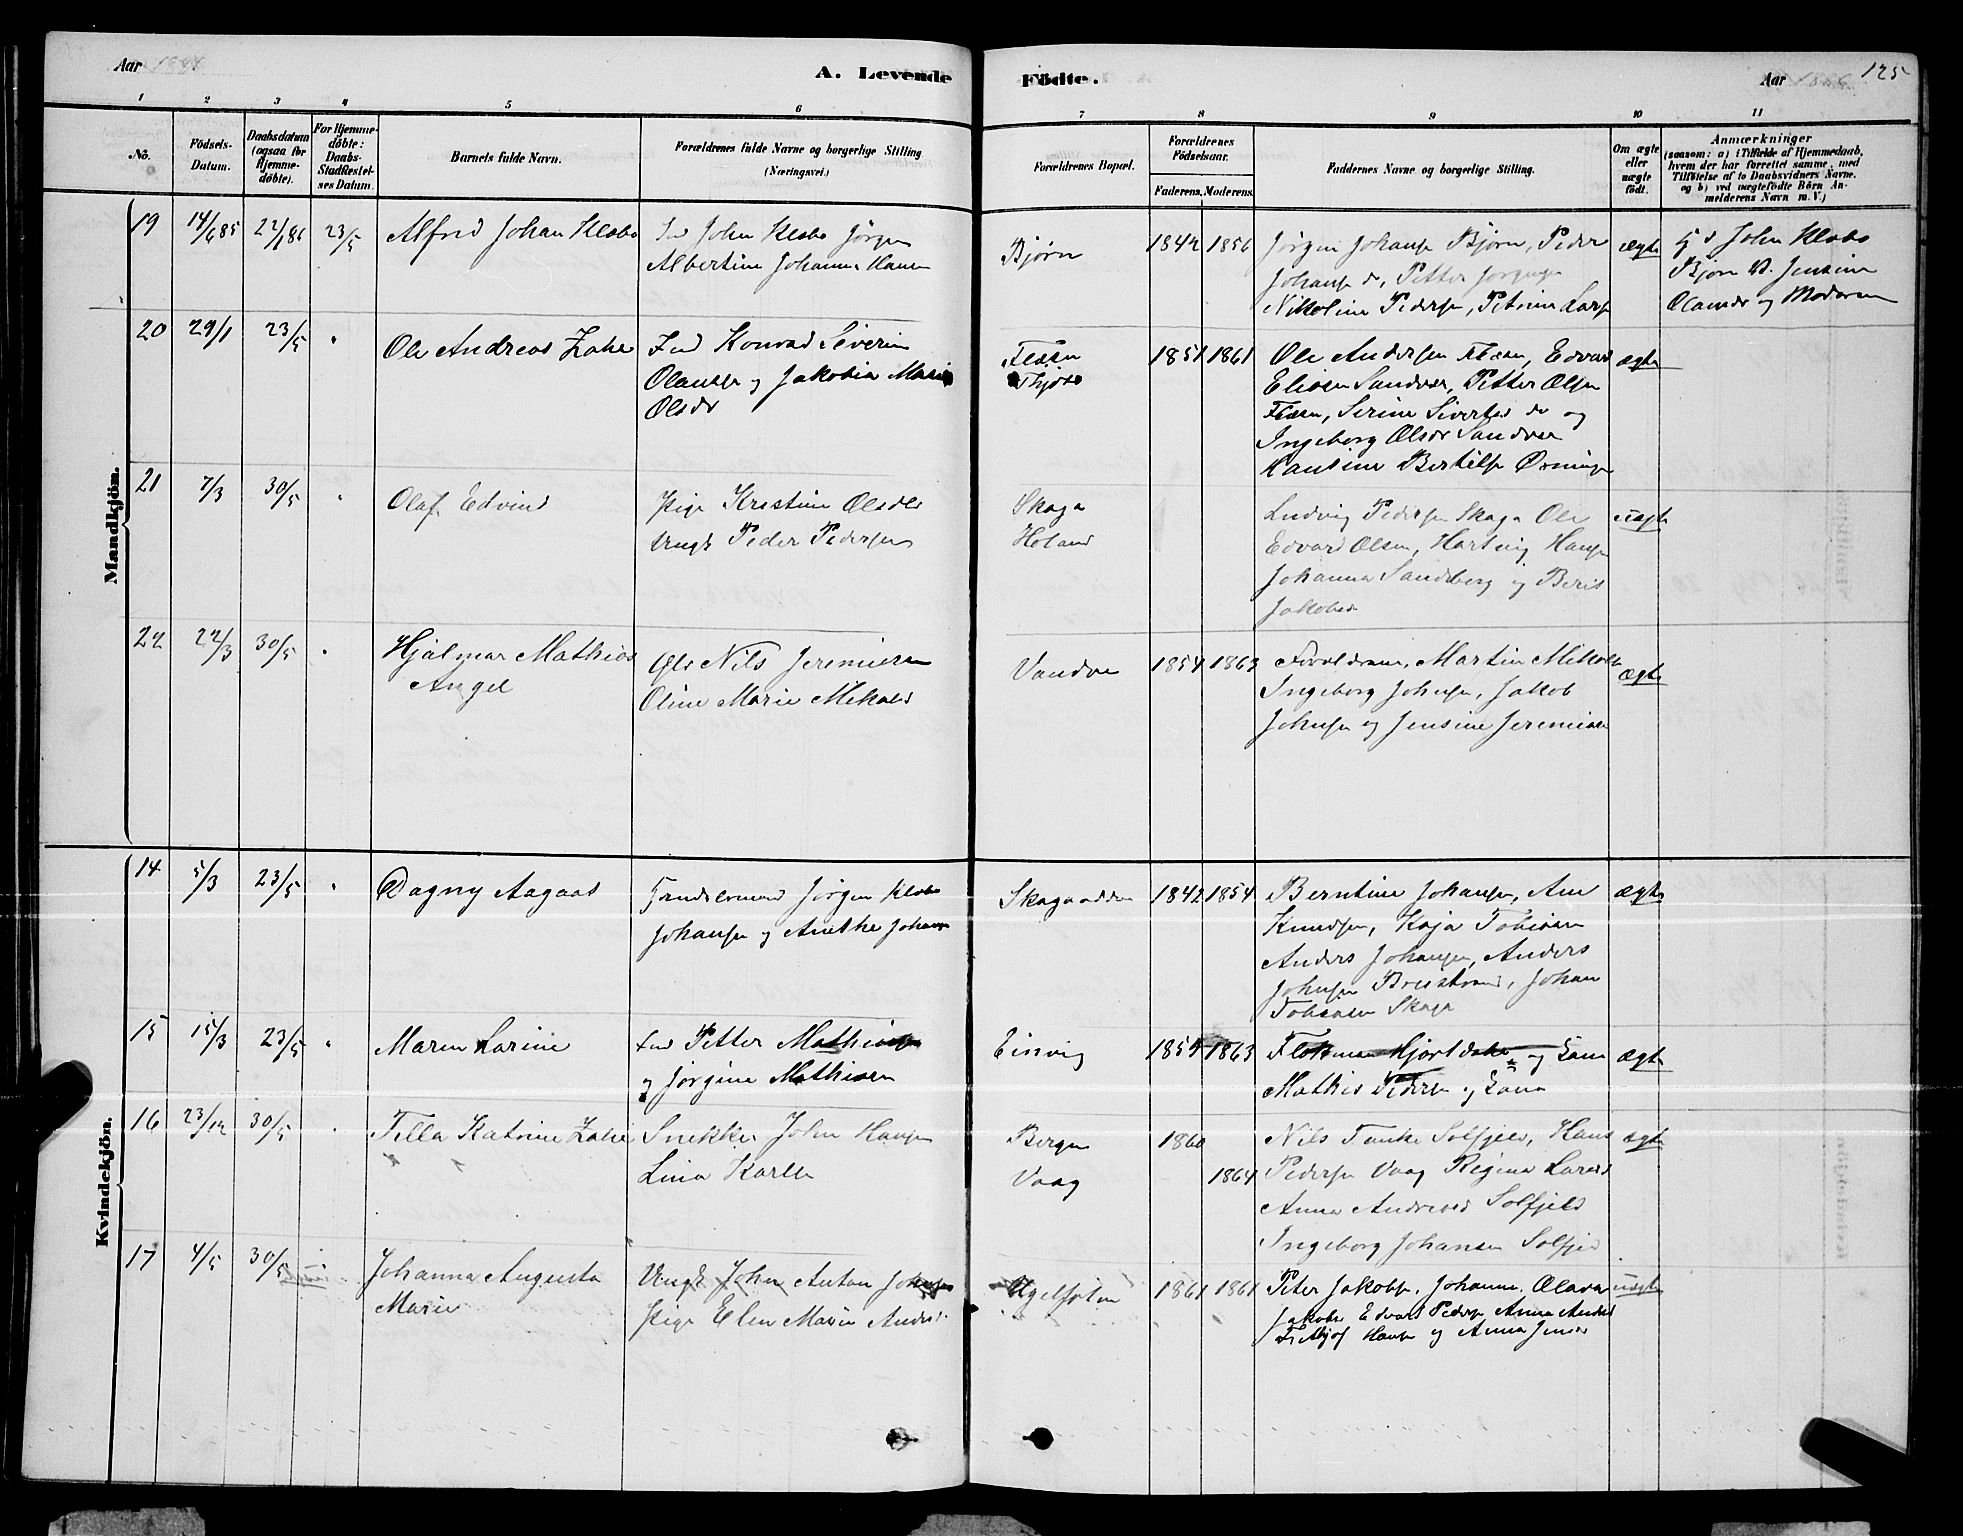 Aar
A. Levende
Födte.
Aar
125
1 2 3 4 5 6
7 8 9 10 11
No.
Födsels-
Datum.
Daabsdatum
(ogsaa for
Hjemme-
döbte).
For Hjemme-
döbte:
Daabs-
Stadfæstel-
ses Datum.
Barnets fulde Navn.
Forældrenes fulde Navne og borgerlige Stilling
(Næringsvei.)
Forældrenes Bopæl.
Forældrenes
Födselsaar.
Faderens. Moderens.
Faddernes Navne og borgerlige Stilling.
Om ægte
eller
uægte
født.
Anmærkninger
(saasom: a) i Tilfælde af Hjemmedaab,
hvem der har forrettet samme, med
Tilföielse af to Daabsvidners Navne.
og b) ved uægtefödte Börn An-
melderens Navn m. V.)
Mandkjön.
19 14/6 85 22/1 86 23/5 Alfred Johan Klæbo
Ind John Klæbo Jörgen
Albertine Johanna Hansen
Bjørn
1842 1856
Jörgen Johans Bjørn, Peder
Johans do, Petter Jørgensen
Nikoline Peders, Petrine Lars
ægte
John Klæbo
Bjørn Jensine
Olausdr og Moderen
20 29/1 23/5 " Ole Andreas Zake
Ind Konrad Severin
Olausen og Jakobia Marie
Olsdr
Flæsen
1851 1861
Ole Andersen Flæsen, Edvard
Eliasen Sandvær, Petter Olsen
Flæsen, Serine Sivertsd do og
Ingeborg Olsdr Sandvær
Hansine Bertels
ægte
21 7/3 30/5 " Olaf Edvind
Pige Kristine Olsdr
Ungk Peder Pedersen
Skaga
Holand
Ludvig Pedersen Skaga Ole
Edvard Olsen, Hartvig Hans
Johanna Sandberg og Berit
Jakobsd
uægte
22 22/3 30/5 " Hjalmar Mathias
Angel
Nils Jeremiasen
Oline Marie Mikals
Vandve
1854 1863
Forældrene, Martin Mikals
Ingeborg Johns, Jakob
Johns og Jensine Jeremiasen
ægte
Kvindekjön.
14 5/3 23/5 " Dagny Aagaat
Jørgen Klæbo
Johans og Anethe Johans
Skagaodden
1842 1854
Berntine Johans, Ane
Knuds, Kaja Tobiasen
Anders Johansen, Anders
Johns Breistrand, Johan
Tobiasen Skaga
ægte
15 15/3 23/5 " Maren Larine
Ind Petter Mathias
og Jørgine Mathiasen
Einvig
1854 1863
og Kone
Mathis Peders og Kona
ægte
16 23/12 30/5 " Tella Katrine Zake
Snekker John Hansen
Lina Karls
Bergen
Vaag
1860
1864
Nils Tanke Solfjeld, Hans
Peders Vaag Regina Larsd
Anna Andreasd Solfjeld
Ingeborg Johansen Solfjed
ægte
17 4/5 30/5 " Johanna Augusta
Marie
Ungk John Anton Johns
Pige Elen Marie Anders
1861 1861
Peter Jakobs, Johanna Olava
Jakobs Edvard Peders Anna Anders
Fritjof Hans og Anna Jensd
uægte